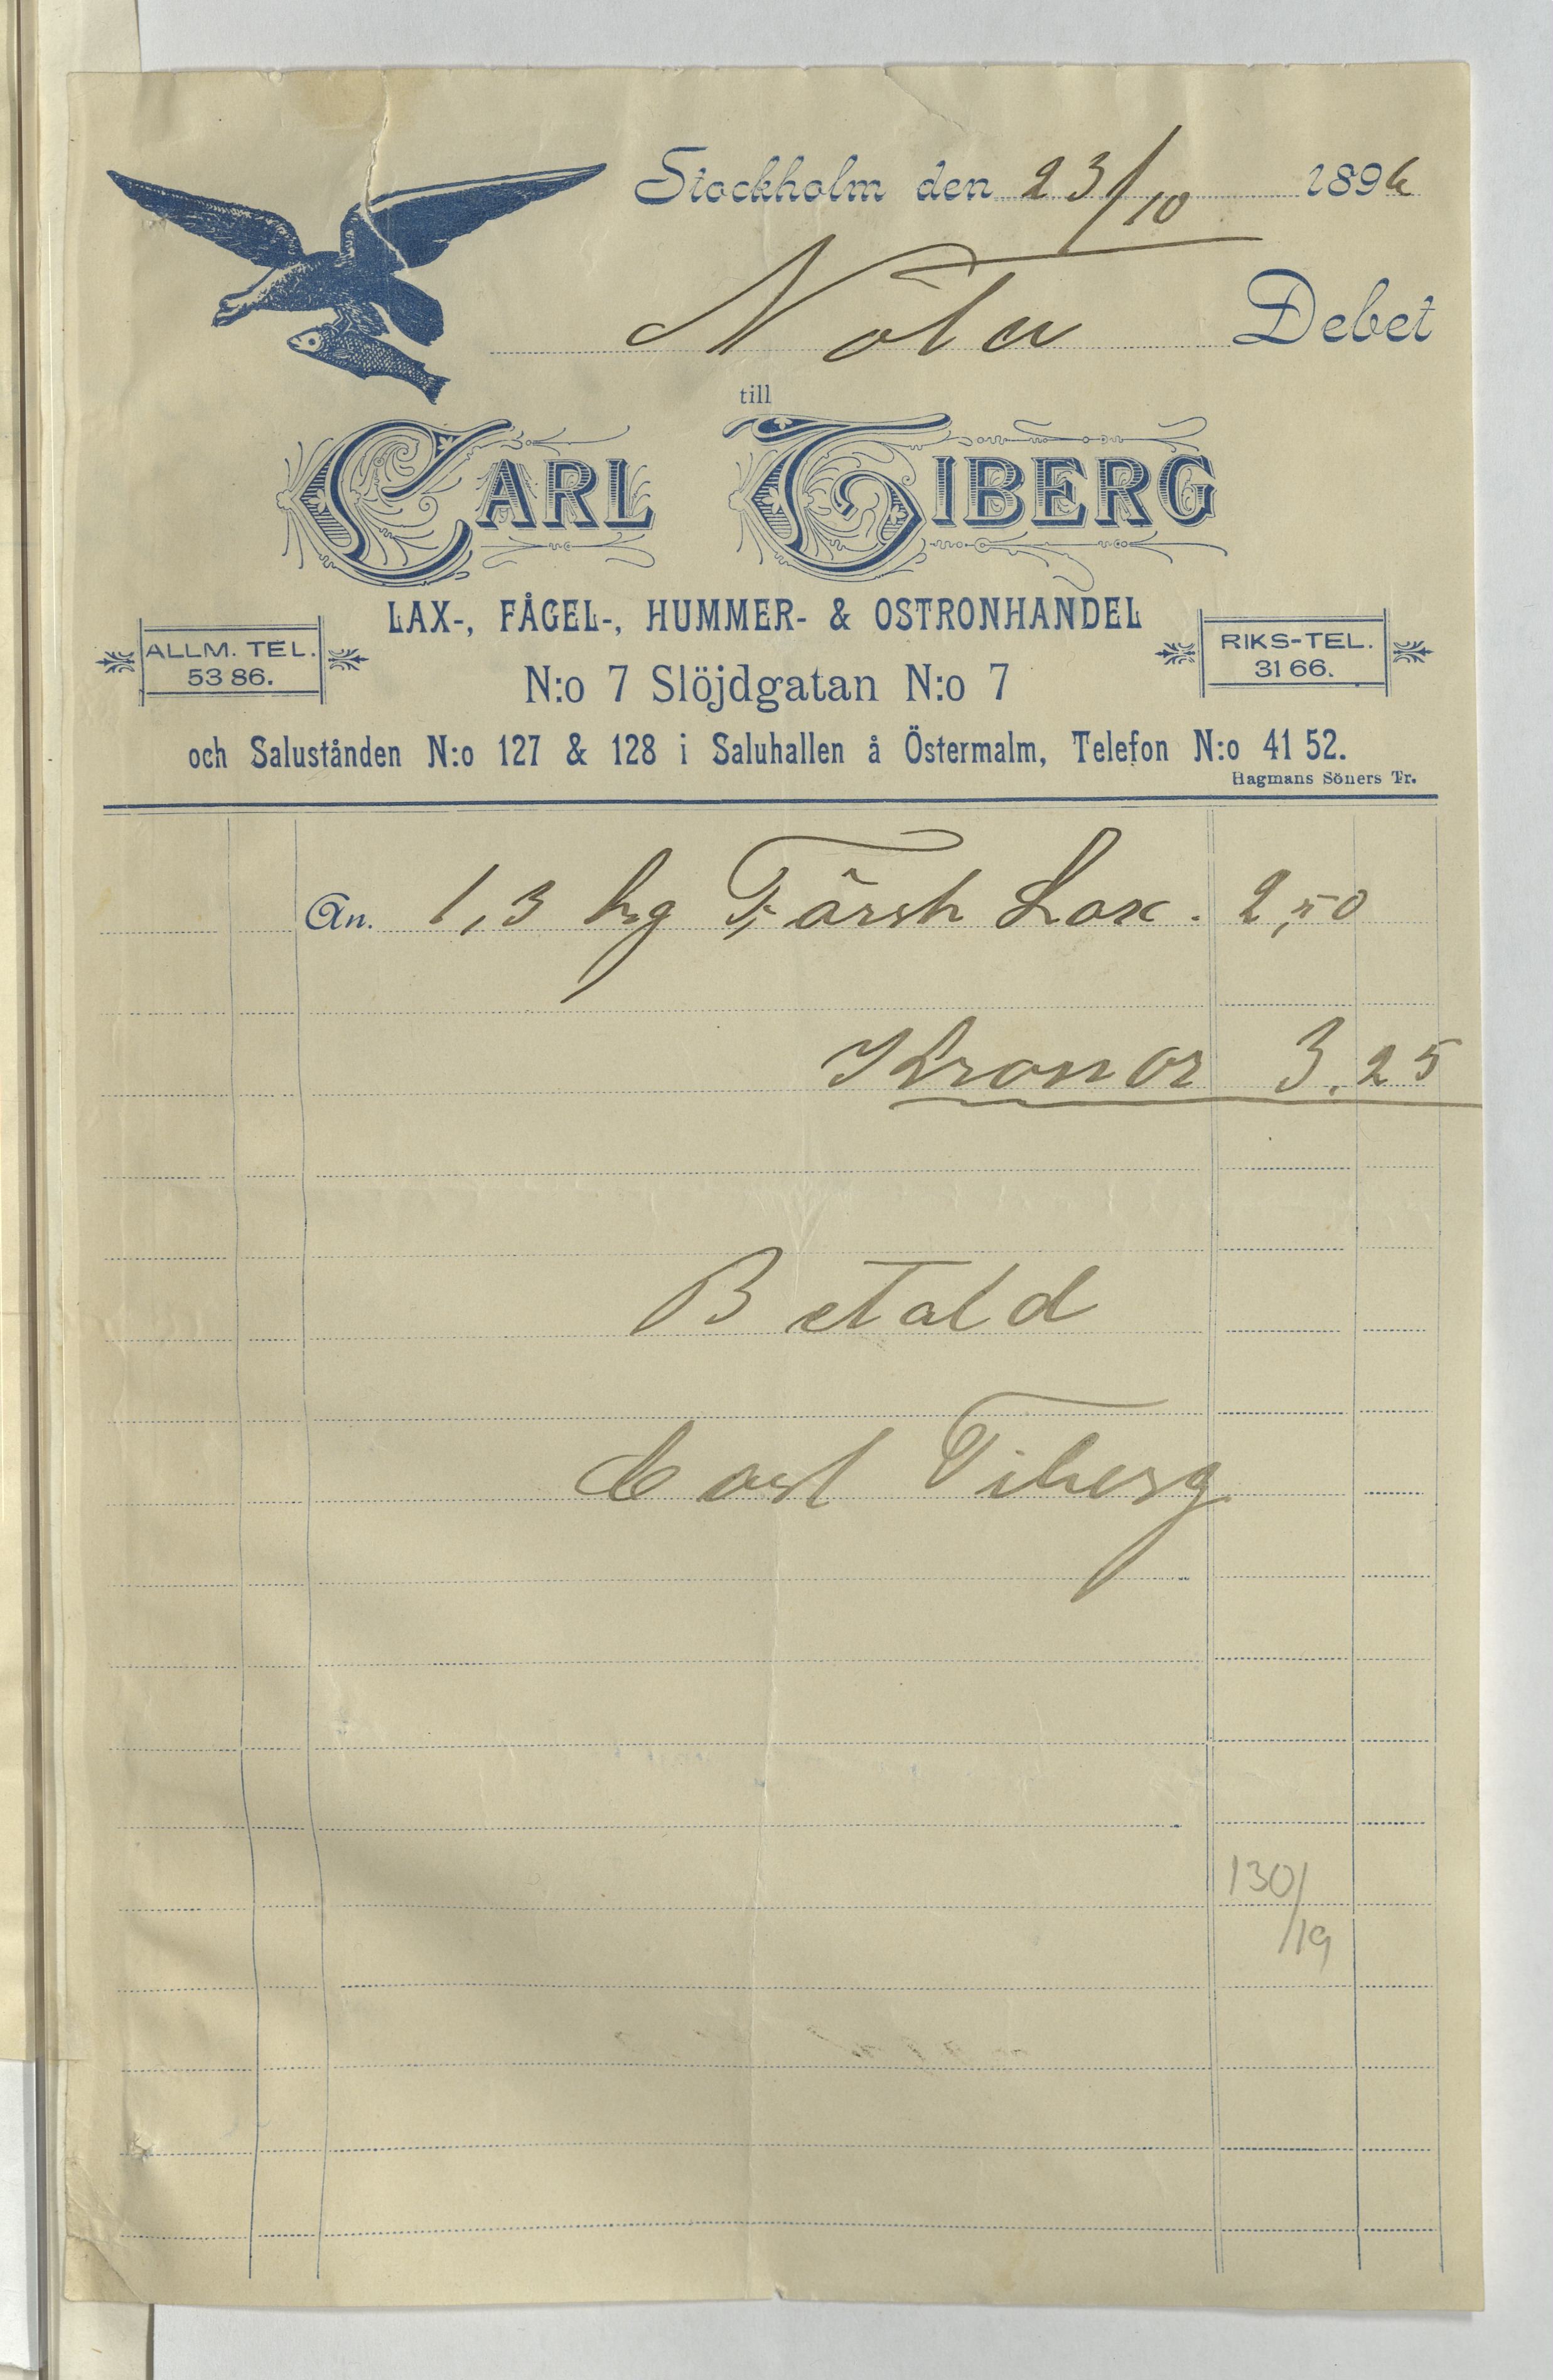 Stockholm den 23/10 1896
Nota Debet
till
CARL TIBERG
LAX-, FÅGEL-, HUMMER- & OSTRONHANDEL
ALLM. TEL. 53 86.
N:o 7 Slöjdgatan N:o 7
RIKS-TEL. 31 66.
och Salustånden N:o 127 & 128 i Saluhallen å Östermalm, Telefon N:o 41 52.
Hagmans Söners Tr.
An. 1,3 kg Färsk Lax. 2,50
Kronor 3.25
Betald
Carl Tiberg
130/19